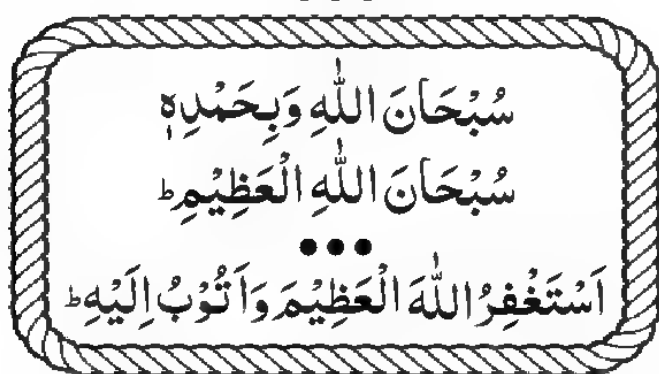 سُبْحَانَ اللّٰهِ وَبِحَمْدِهٖ
سُبْحَانَ اللّٰهِ الْعَظِيْمِ ؕ
●●●
اَسْتَغْفِرُ اللّٰهَ الْعَظِيْمَ وَاَتُوْبُ اِلَيْهِ ؕ